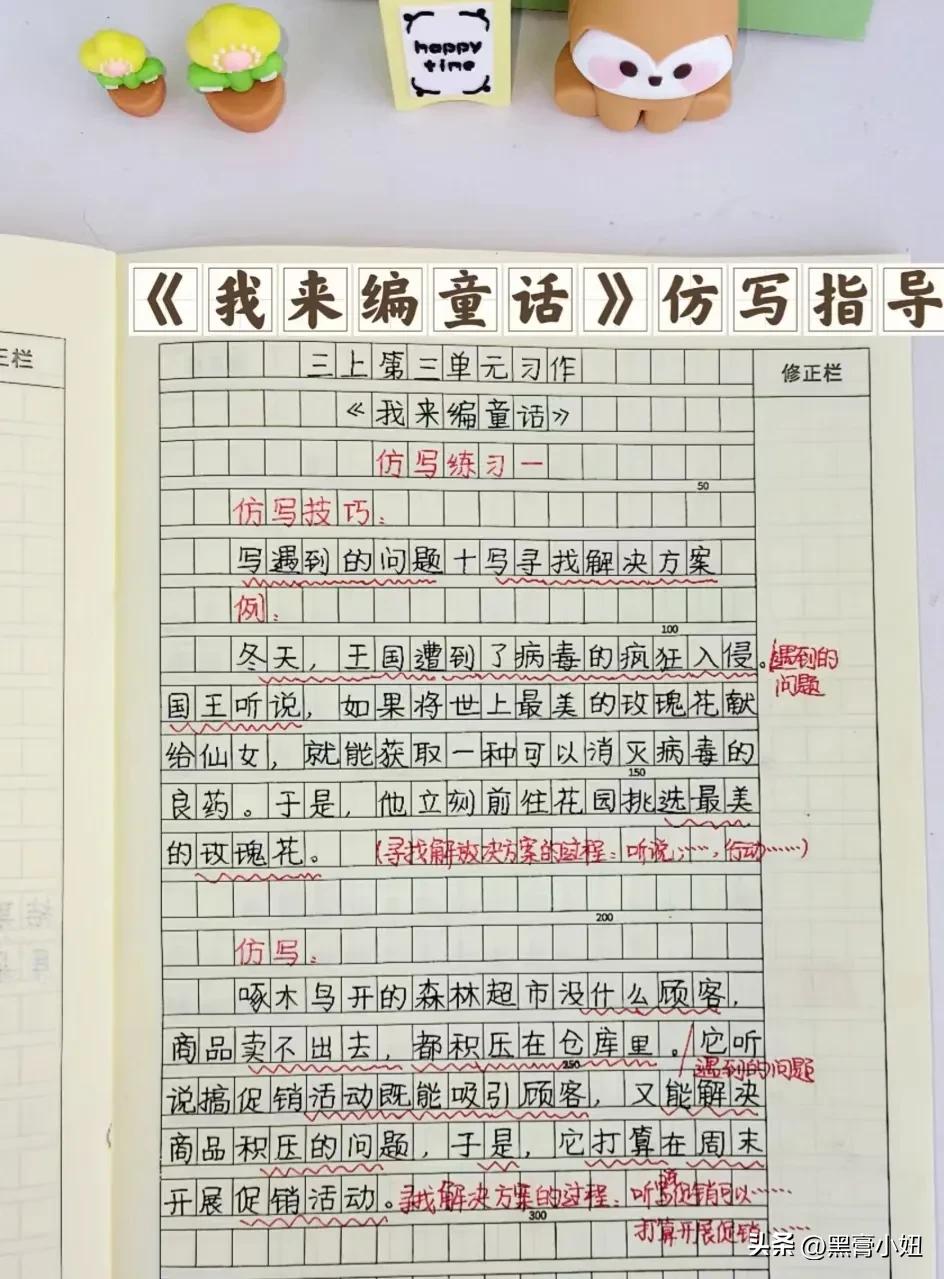 happy
time
《我来编童话》仿写指导
三上第三单元习作
修正栏
正栏
《我来编童话》
仿写练习一
50
仿写技巧:
写遇到的问题+写寻找解决方案
例:
100
冬天,王国遭到了病毒的疯狂入侵。
遇到的
问题
国王听说,如果将世上最美的玫瑰花献
给仙女,就能获取一种可以消灭病毒的
150
良药。于是,他立刻前往花园挑选最美
的玫瑰花。(寻找解放决方案的过程:听说……,行动……)
200
仿写:
啄木鸟开的森林超市没什么顾客,
商品卖不出去,都积压在仓库里。/它听
遇到的问题
250
说搞促销活动既能吸引顾客,又能解决
商品积压的问题,于是,它打算在周末
开展促销活动。寻找解决方案的过程:听搞促销可以……
300
打算开展促销……
头条 @黑膏小妞